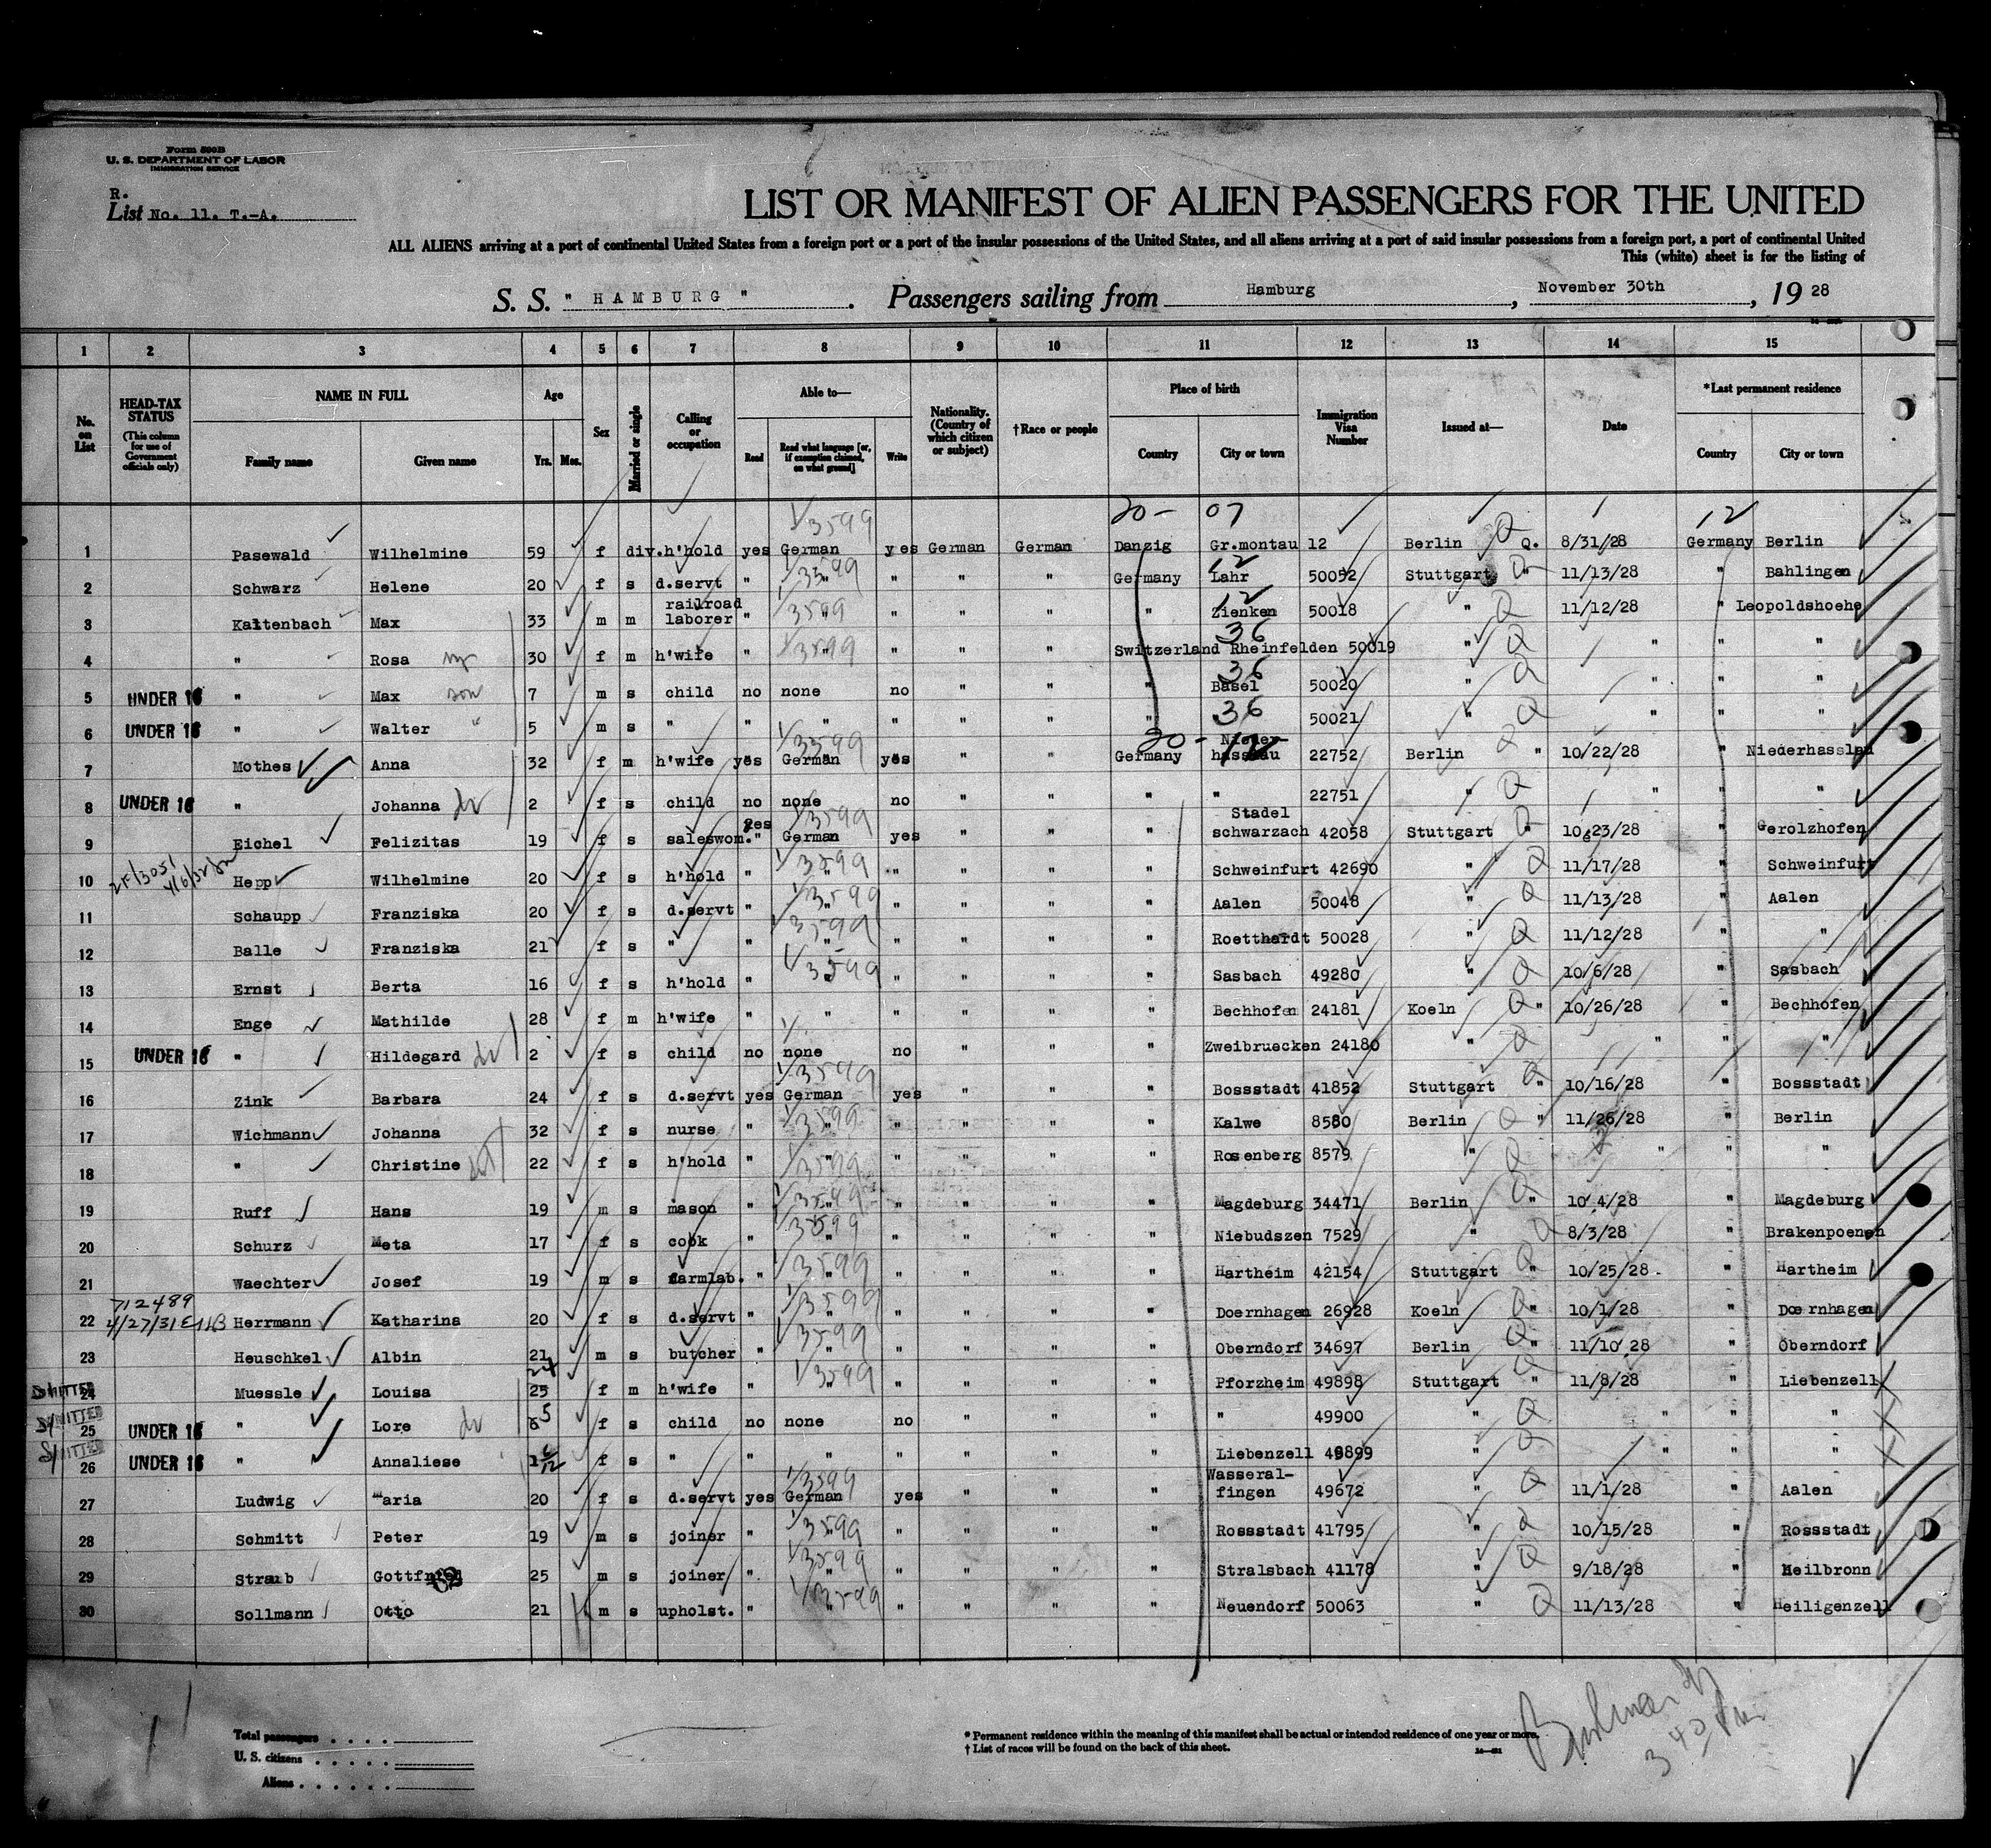 Form 500B
U. S. DEPARTMENT OF LABOR
IMMIGRATION SERVICE
R.
List No. 11. T.-A.
LIST OR MANIFEST OF ALIEN PASSENGERS FOR THE UNITED
ALL ALIENS arriving at a port of continental United States from a foreign port or a port of the insular possessions of the United States, and all aliens arriving at a port of said insular possessions from a foreign port, a port of continental United
This (white) sheet is for the listing of
S. S. " HAMBURG " . Passengers sailing from Hamburg , November 30th , 19 28
1 2 3 4 5 6 7 8 9 10 11 12 13 14 15
No. on List
HEAD-TAX STATUS (This column for use of Government officials only)
NAME IN FULL Family name Given name
Age Yrs. Mos.
Sex
Married or single
Calling or occupation
Able to— Read Read what language [or, if exemption claimed, on what ground] Write
Nationality. (Country of which citizen or subject)
†Race or people
Place of birth Country City or town
Immigration Visa Number
Issued at—
Date
*Last permanent residence Country City or town
20- 07 12
1 Pasewald Wilhelmine 59 f div. h'hold yes German yes German German Danzig Gr.montau 12 Berlin Q. 8/31/28 Germany Berlin
2 Schwarz Helene 20 f s d.servt " " " " " Germany Lahr 50052 Stuttgart " 11/13/28 " Bahlingen
3 Kaltenbach Max 33 m m railroad laborer " " " " " Zienken 50018 " 11/12/28 " Leopoldshoehe
4 " Rosa 30 f m h'wife " " " " " Switzerland Rheinfelden 50019 " " " "
5 UNDER 16 " Max son 7 m s child no none no " " " Basel 50020 " " " "
6 UNDER 16 " Walter " 5 m s " " " " " " " 36 50021 " " " "
7 Mothes Anna 32 f m h'wife yes German yes " " Germany Nieder-hasslau 22752 Berlin " 10/22/28 " Niederhasslau
8 UNDER 16 " Johanna 2 f s child no none no " " " " 22751 " " " "
9 Eichel Felizitas 19 f s saleswom. yes German yes " " " Stadel schwarzach 42058 Stuttgart " 10/23/28 " Gerolzhofen
10 Hepp Wilhelmine 20 f s h'hold " " " " " " Schweinfurt 42690 " 11/17/28 " Schweinfurt
11 Schaupp Franziska 20 f s d.servt " " " " " " Aalen 50048 " 11/13/28 " Aalen
12 Balle Franziska 21 f s " " " " " " " Roetthardt 50028 " 11/12/28 " "
13 Ernst Berta 16 f s h'hold " " " " " " Sasbach 49280 " 10/6/28 " Sasbach
14 Enge Mathilde 28 f m h'wife " " " " " " Bechhofen 24181 Koeln " 10/26/28 " Bechhofen
15 UNDER 16 " Hildegard 2 f s child no none no " " " Zweibruecken 24180 " " " "
16 Zink Barbara 24 f s d.servt yes German yes " " " Bossstadt 41852 Stuttgart " 10/16/28 " Bossstadt
17 Wichmann Johanna 32 f s nurse " " " " " " Kalwe 8580 Berlin " 11/26/28 " Berlin
18 " Christine 22 f s h'hold " " " " " " Rosenberg 8579 " " " "
19 Ruff Hans 19 m s mason " " " " " " Magdeburg 34471 Berlin " 10/4/28 " Magdeburg
20 Schurz Meta 17 f s cook " " " " " " Niebudszen 7529 " 8/3/28 " Brakenpoenen
21 Waechter Josef 19 m s farmlab. " " " " " " Hartheim 42154 Stuttgart " 10/25/28 " Hartheim
712489
22 4/27/31 Herrmann Katharina 20 f s d.servt " " " " " " Doernhagen 26928 Koeln " 10/1/28 " Doernhagen
23 Heuschkel Albin 21 m s butcher " " " " " " Oberndorf 34697 Berlin " 11/10/28 " Oberndorf
24 Muessle Louisa 25 f m h'wife " " " " " " Pforzheim 49898 Stuttgart " 11/8/28 " Liebenzell
25 UNDER 16 " Lore 5 f s child no none no " " " " 49900 " " " "
26 UNDER 16 " Annaliese f s " " " " " " " Liebenzell 49899 " " " "
27 Ludwig Maria 20 f s d.servt yes German yes " " " Wasseral-fingen 49672 " 11/1/28 " Aalen
28 Schmitt Peter 19 m s joiner " " " " " " Rossstadt 41795 " 10/15/28 " Rossstadt
29 Straub Gottfried 25 m s joiner " " " " " " Stralsbach 41178 " 9/18/28 " Heilbronn
30 Sollmann Otto 21 m s upholst. " " " " " " Neuendorf 50063 " 11/13/28 " Heiligenzell
Total passengers . . . .
U. S. citizens . . . . .
Aliens . . . . . .
* Permanent residence within the meaning of this manifest shall be actual or intended residence of one year or more.
† List of races will be found on the back of this sheet.